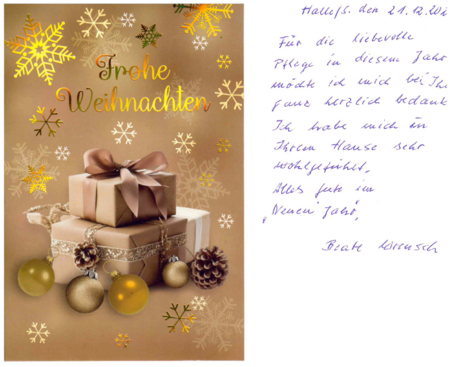 Frohe
Weihnachten
Halle/S. den 21.12.
Für die liebevolle
Pflege in diesem Jahr
möchte ich mich bei Ih
ganz herzlich bedank
Ich habe mich in
Ihrem Hause sehr
wohlgefühlt.
Alles gute im
„Neuen Jahr",
Beate